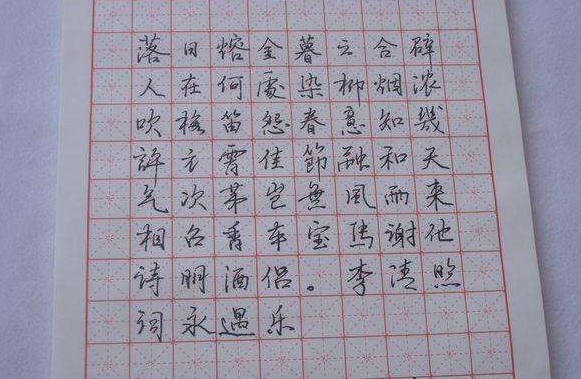 落日熔金暮云合璧
人在何處染柳烟浓
吹梅笛怨春意知幾
許元宵佳節融和天
气次第岂無風雨来
相召香车宝馬谢他
诗朋酒侣。李清照
词永遇乐